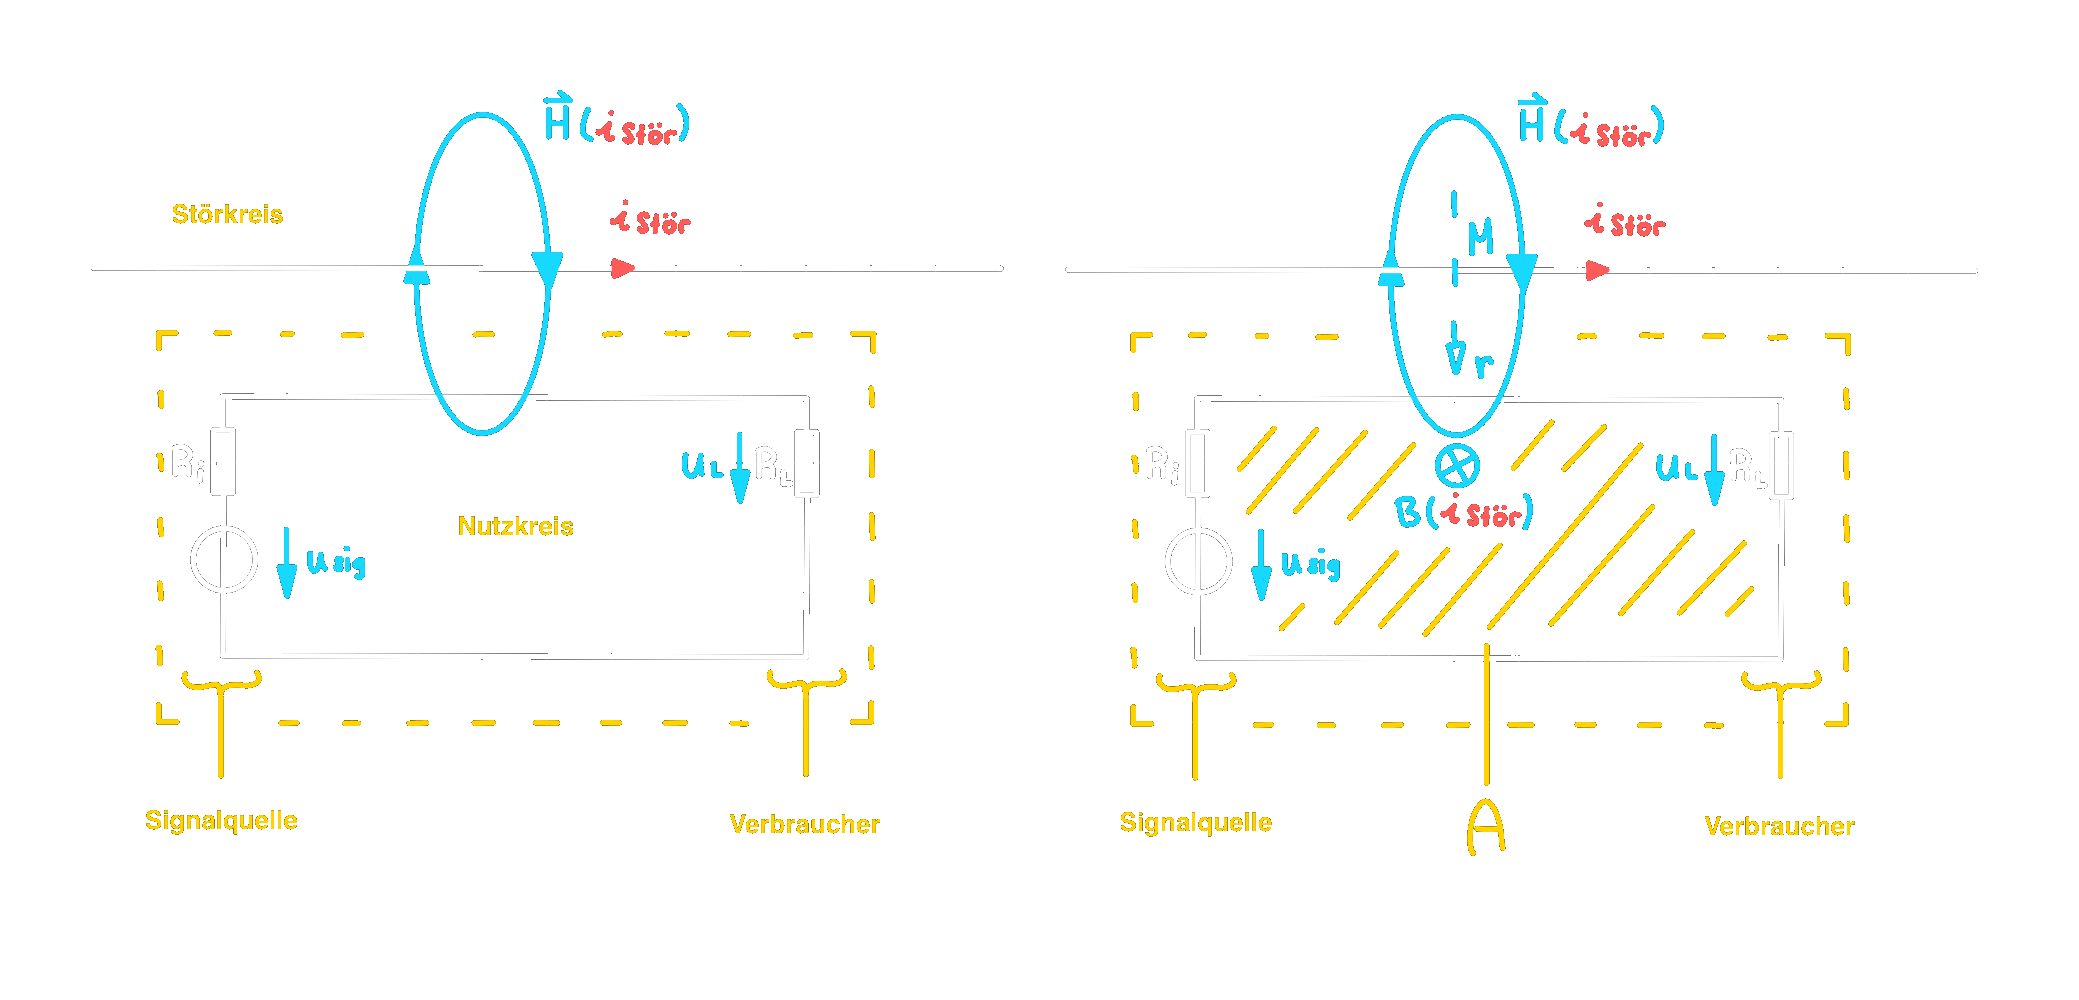 H(i Stör)
Störkreis
i Stör
Ri
uL
RL
Nutzkreis
usig
Signalquelle
Verbraucher
H(i Stör)
M
i Stör
r
Ri
uL
RL
B(i Stör)
usig
A
Signalquelle
Verbraucher